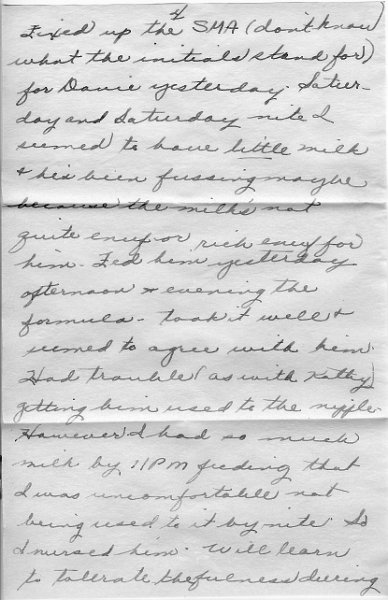 4
Fixed up the SMA (don't know
what the initials stand for)
for Davie yesterday. Satur-
day and Saturday nite I
seemed to have little milk
& he's been fussing maybe
because the milk's not
quite enuf or rich enuf for
him. Fed him yesterday
afternoon & evening the
formula - took it well &
seemed to agree with him.
Had trouble (as with Kathy)
getting him used to the nipple.
However I had so much
milk by 11 PM feeding that
I was uncomfortable not
being used to it by nite. So
I nursed him. Will learn
to tolerate the fulness during